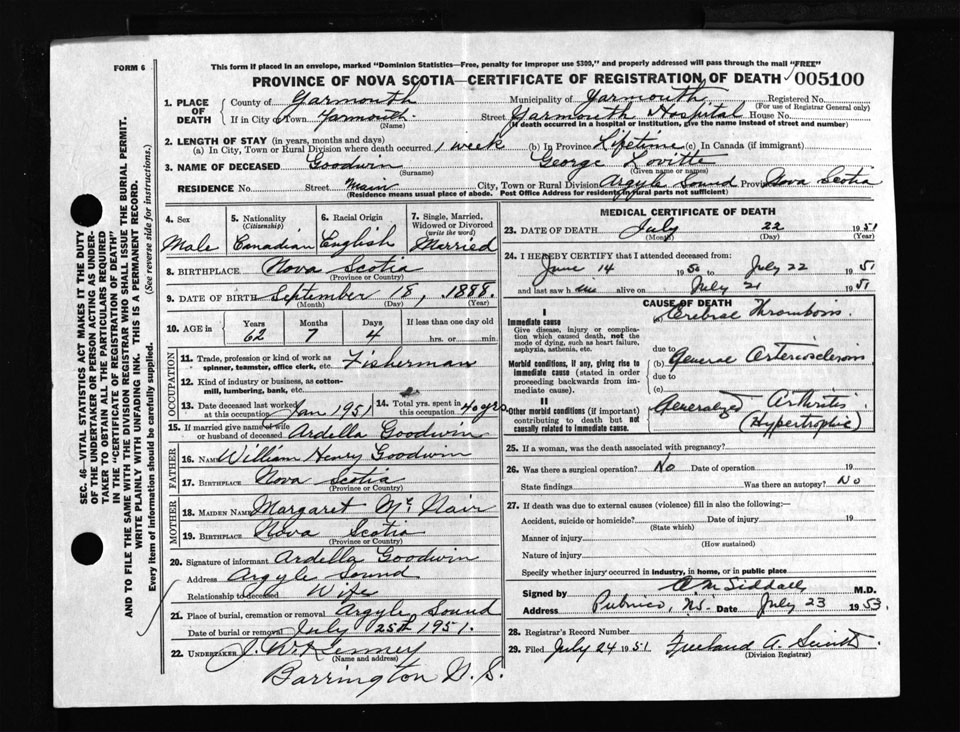 FORM 6
This form if placed in an envelope, marked "Dominion Statistics—Free, penalty for improper use $300," and properly addressed will pass through the mail "FREE"
PROVINCE OF NOVA SCOTIA—CERTIFICATE OF REGISTRATION OF DEATH
005100
SEC. 46—VITAL STATISTICS ACT MAKES IT THE DUTY
OF THE UNDERTAKER OR PERSON ACTING AS UNDER-
TAKER TO OBTAIN ALL THE PARTICULARS REQUIRED
IN THE "CERTIFICATE OF REGISTRATION OF DEATH"
AND TO FILE THE SAME WITH THE DIVISION REGISTRAR WHO SHALL ISSUE THE BURIAL PERMIT.
WRITE PLAINLY WITH UNFADING INK. THIS IS A PERMANENT RECORD.
Every item of information should be carefully supplied. (See reverse side for instructions.)
1. PLACE OF DEATH
County of Yarmouth Municipality of Yarmouth Registered No.
(For use of Registrar General only)
If in City or Town Yarmouth. Street Yarmouth Hospital House No.
(Name) (If death occurred in a hospital or institution, give the name instead of street and number)
2. LENGTH OF STAY (in years, months and days)
(a) In City, Town or Rural Division where death occurred 1 week (b) In Province Lifetime (c) In Canada (if immigrant)
3. NAME OF DECEASED Goodwin George Lovitte
(Surname) (Given name or names)
RESIDENCE No. Street Main City, Town or Rural Division Argyle Sound Province Nova Scotia
(Residence means usual place of abode. Post Office Address for residents in rural parts not sufficient)
4. Sex
Male
5. Nationality
(Citizenship)
Canadian
6. Racial Origin
English
7. Single, Married,
Widowed or Divorced
(write the word)
Married
8. BIRTHPLACE Nova Scotia
(Province or Country)
9. DATE OF BIRTH September 18, 1888.
(Month) (Day) (Year)
10. AGE in
Years Months Days If less than one day old
62 7 4 hrs. or min.
OCCUPATION
11. Trade, profession or kind of work as
spinner, teamster, office clerk, etc. Fisherman
12. Kind of industry or business, as cotton-
mill, lumbering, bank, etc.
13. Date deceased last worked
at this occupation Jan 1951
14. Total yrs. spent in
this occupation 40 yrs
15. If married give name of wife
or husband of deceased Ardella Goodwin
FATHER
16. NAME William Henry Goodwin
17. BIRTHPLACE Nova Scotia
(Province or Country)
MOTHER
18. MAIDEN NAME Margaret Mc Nair
19. BIRTHPLACE Nova Scotia
(Province or Country)
20. Signature of informant Ardella Goodwin
Address Argyle Sound
Relationship to deceased Wife
21. Place of burial, cremation or removal Argyle Sound
Date of burial or removal July 25th 1951.
22. UNDERTAKER J. McKenney
(Name and address)
Barrington N.S.
MEDICAL CERTIFICATE OF DEATH
23. DATE OF DEATH July 22 1951
(Month) (Day) (Year)
24. I HEREBY CERTIFY that I attended deceased from:
June 14 1950 to July 22 1951
and last saw h alive on July 21 1951
CAUSE OF DEATH
I
Immediate cause
Give disease, injury or complica-
tion which caused death, not the
mode of dying, such as heart failure,
asphyxia, asthenia, etc.
(a) Cerebral Thrombosis.
due to
Morbid conditions, if any, giving rise to
immediate cause (stated in order
proceeding backwards from im-
mediate cause).
(b) General Arteriosclerosis
due to
(c)
II
Other morbid conditions (if important)
contributing to death but not
causally related to immediate cause.
Generalized Arthritis
(Hypertrophic)
25. If a woman, was the death associated with pregnancy?
26. Was there a surgical operation? No Date of operation 19
State findings Was there an autopsy? No
27. If death was due to external causes (violence) fill in also the following:—
Accident, suicide or homicide? Date of injury 19
(State which)
Manner of injury
(How sustained)
Nature of injury
Specify whether injury occurred in industry, in home, or in public place
Signed by A M Siddall M.D.
Address Pubnico, N.S. Date July 23 1953.
28. Registrar's Record Number
29. Filed July 24 1951 Freeland A. Smith
(Division Registrar)